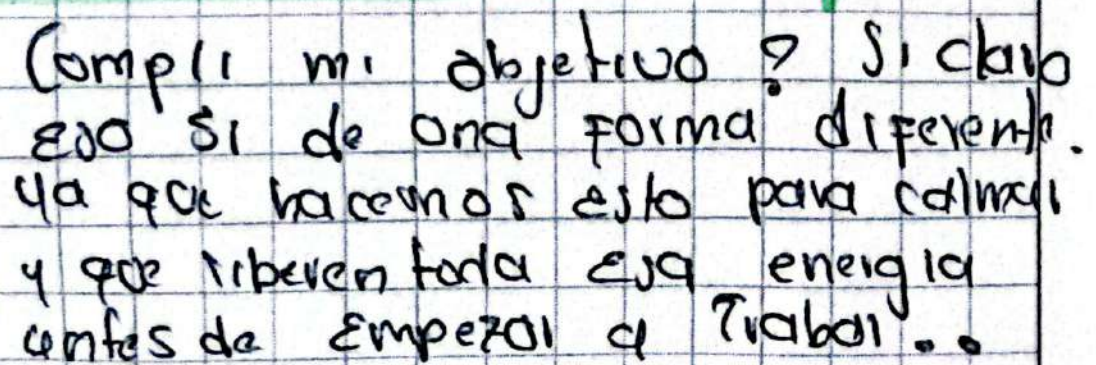 Compli mi objetivo? Si claro
eso si de una forma diferente.
ya que hacemos esto para calmar
y que liberen toda esa energia
antes de Empezar a Trabar..